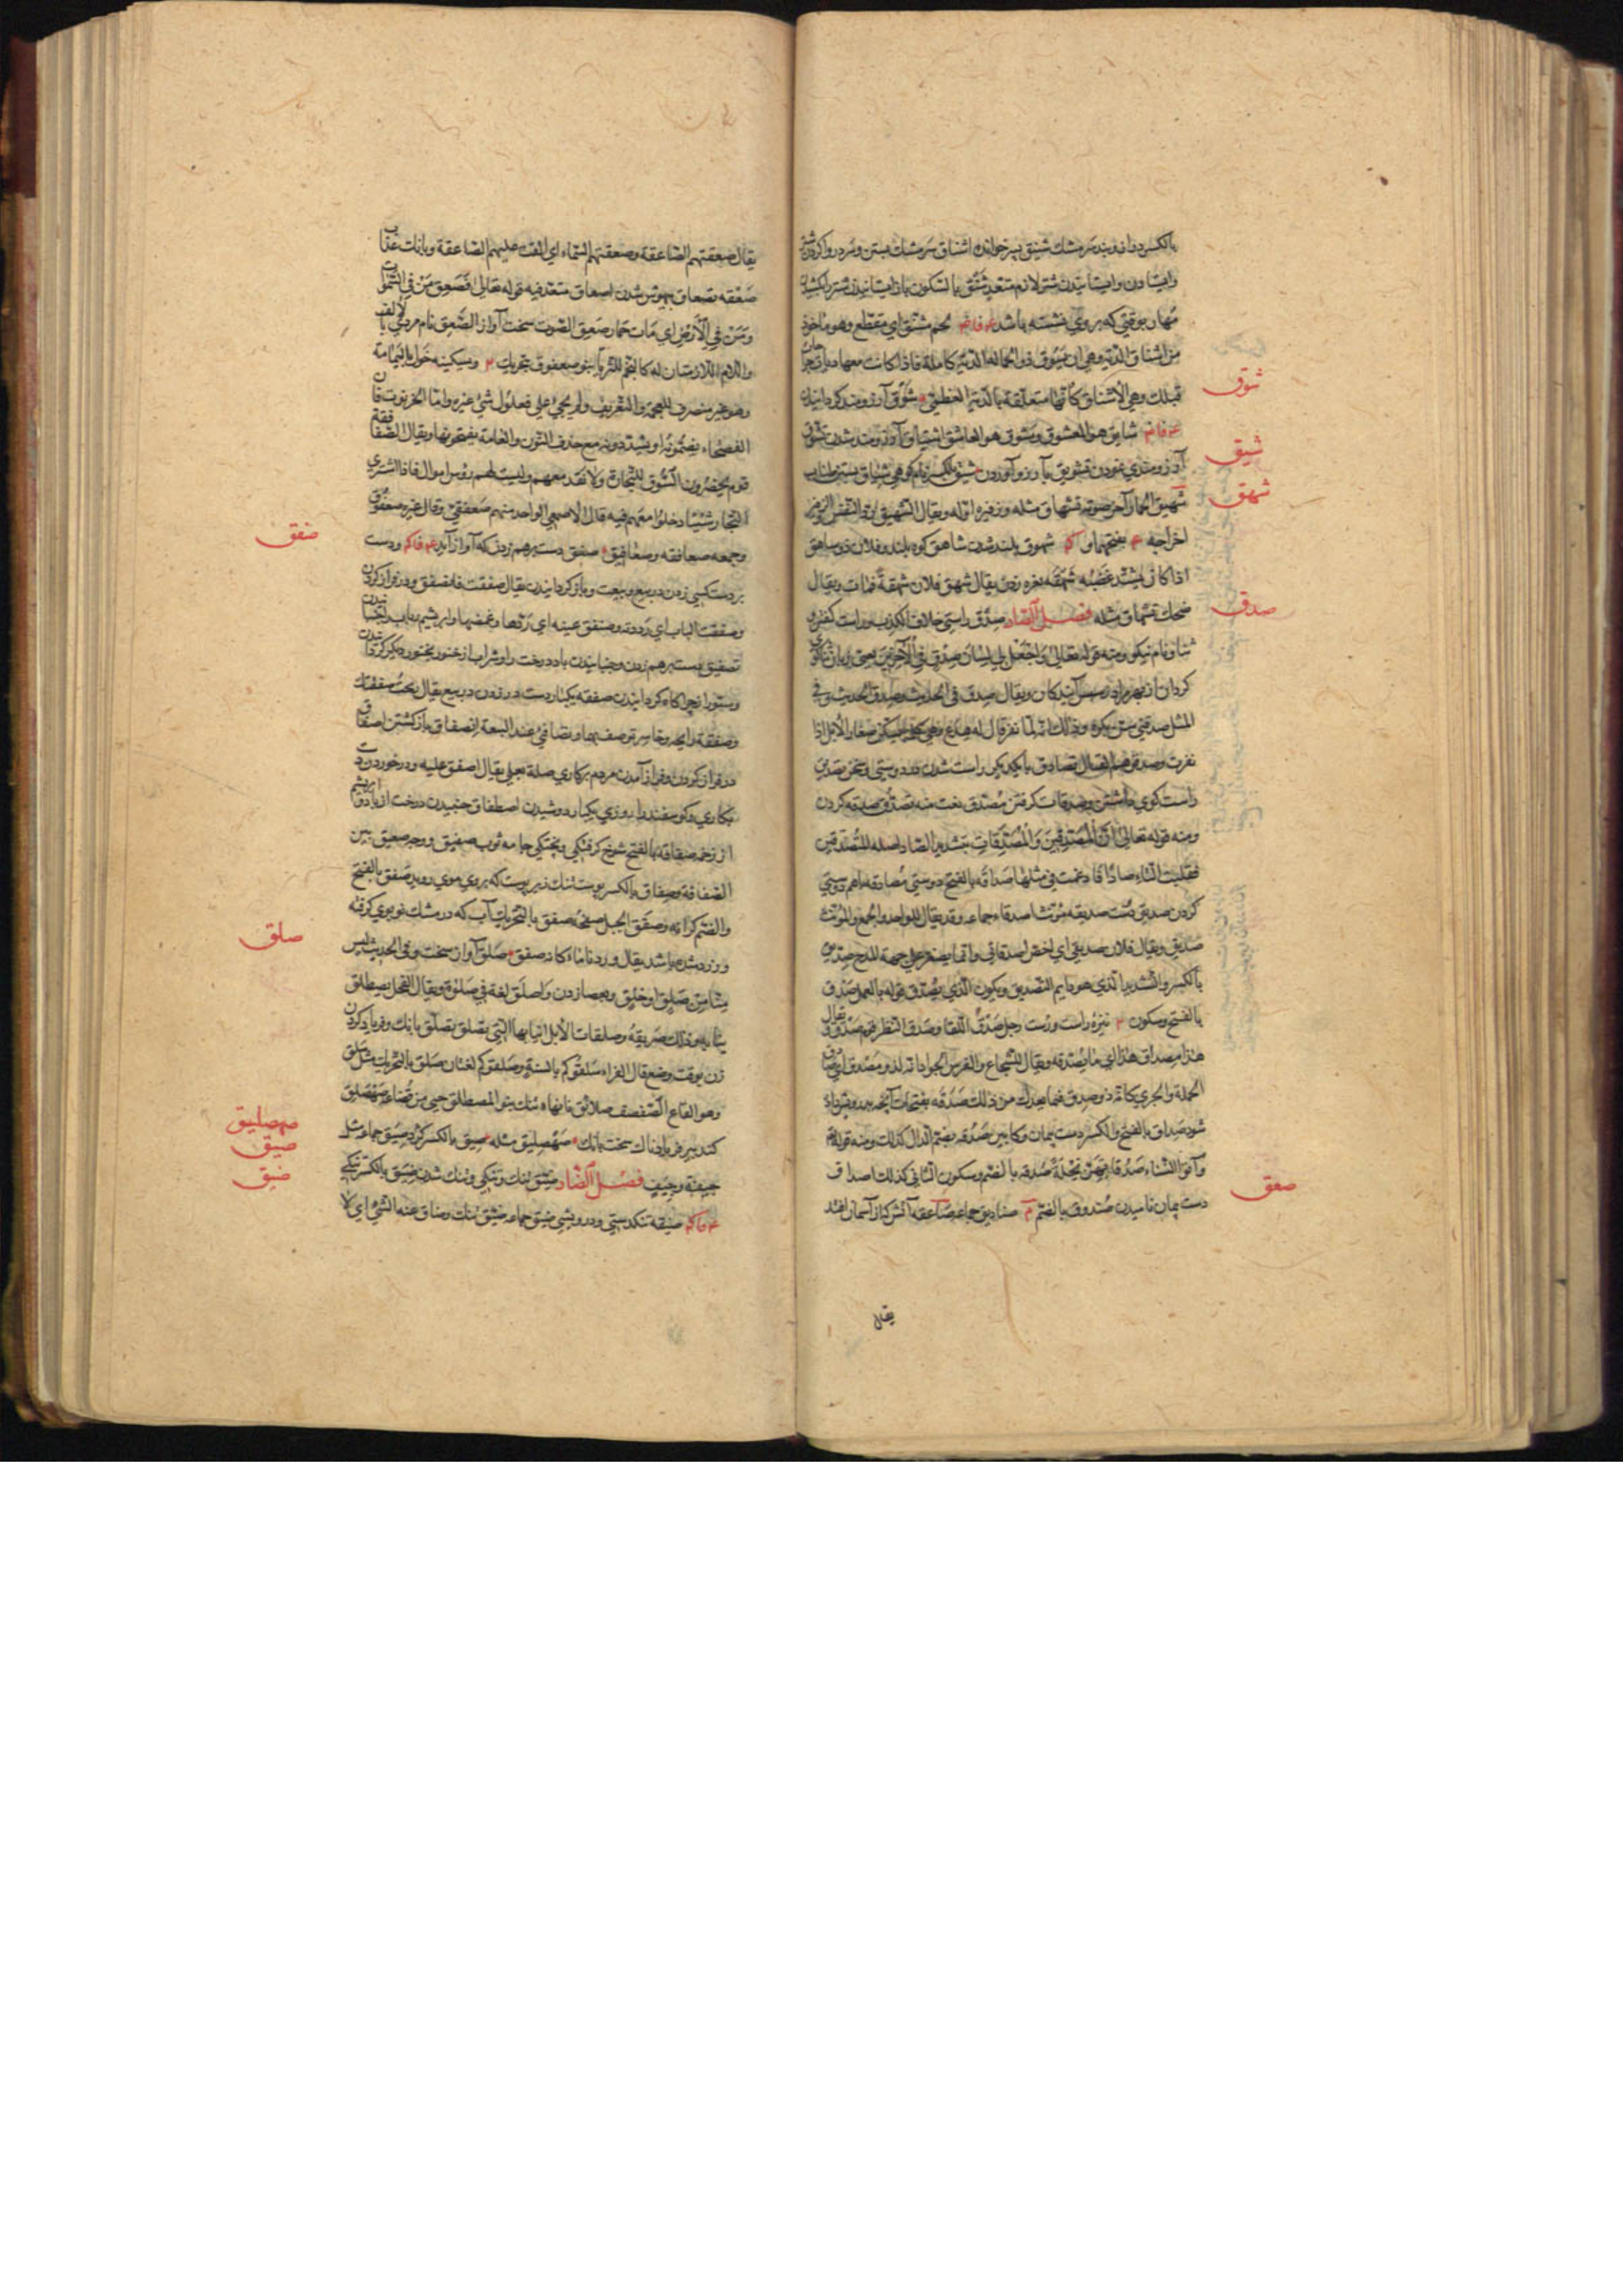 بالکسر دوال و بند سر مشک شنیق پسر خوانده اشناق سر مشک بستن و
وایستادن وایستانیدن شتر لازم متعد شنق بالسکون باز ایستانیدن شتر را بکشیدن
مهار بوقتی که بر وی نشسته باشد لحم مشنق ای مقطع وهو ماخوذ
من اشناق الدیة وهی ان یسوق ذو الحمالة الدیة کاملة فاذا کانت معها دیات
فتلک وهی الاشناق کانها متعلقة بالدیة العظمی شوق آرزومند کردانیدن
شوق
شایق هو المعشوق ومشوق هو العاشق اشتیاق آرزومند شدن تشوق
آرزومندی نمودن تشویق بآرزو آوردن شیق بالکسر
شیق
شهیق الحمار آخر صوته تشهاق مثله وزفیره اوله ویقال الشهیق رد النفس والزفیر
شهق
اخراجه شهوق بلند شدن شاهق کوه بلند وفلان ذو شاهق
اذا کان یشتد غضبه شهقه نعره زدن یقال شهق فلان شهقة فمات ویقال
ضحک تشهاق مثله فصل الصاد صدق راستی خلاف الکذب وراست گفتن و
صدق
ثنا ونام نیکو ومنه قوله تعالی واجعل لی لسان صدق فی الآخرین یعنی
کردان از بهر من در پس آیندکان ویقال صدق فی الحدیث وصدق الحدیث وفی
المثل صدقنی سن بکره وذلک انه لما نفر قال له هدع وهی کلمة یسکن صغار الابل اذا
نفرت وصدقوهم القتال تصادق بایکدیکر راست شدن در دوستی وسخن تصدیق
راست کوی داشتن وصدقات کرفتن مصدق نعت منه تصدق صدقه کردن
ومنه قوله تعالی ان المصدقین والمصدقات بتشدید الصاد اصله المتصدقین
فقلبت التاء صادا فادغمت فی مثلها صداقة بالفتح دوستی مصادقة باهم دوستی
کردن صدیق دوست صدیقه مؤنث اصدقاء جماعه وقد یقال للواحد والجمع والمؤنث
صدیق ویقال فلان صدیقی ای اخص اصدقائی وانما یصغر علی جهة المدح صدیق
بالکسر والتشدید الذی هو دایم التصدیق ویکون الذی یصدق قوله بالعمل صدق
بالفتح وسکون نیزه راست ودرست رجل صدق اللقا وصدق النظر قوم صدق یقال
هذا مصداق هذا ای ما یصدقه ویقال للشجاع والفرس الجواد انه لذو مصدق ای صادق
الحملة والجری کانه ذو صدق فیما یعدک من ذلک صدقه بفتحات آنچه بدرویش داده
شود صداق بالفتح والکسر دست پیمان وکابین صدقة بضم الدال کذلک ومنه قوله
وآتوا النساء صدقاتهن نحلة صدقة بالضم وسکون الثانی کذلک اصداق
دست پیمان نامیدن صندوق بالضم صنادیق جماعه صاعقه آتش کز آسمان افتد
صعق
یقال
یقال صعقتهم الصاعقة وصعقتهم السماء ای القت علیهم الصاعقة وبانک عذاب
صعقه تصعاق بیهوش شدن اصعاق متعد فیه قوله تعالی فصعق من فی السموات
ومن فی الارض ای مات حمار صعق الصوت سخت آواز الصعق نام مردی بالالف
واللام اللازمتان له کالنجم للثریا بنو صعفوق خول بالیمامة
وهو غیر منصرف للعجمة والتعریف ولم یجی علی فعلول شئ غیره واما الخرنوب فان
الفصحاء یضمونه او یشددونه مع حذف النون والعامة یفتحونها ویقال الصعافقة
قوم یحضرون السوق للتجارة ولا نقد معهم ولیست لهم رؤس اموال فاذا اشتری
التجار شیئا دخلوا معهم فیه قال الاصمعی الواحد منهم صعفقی وقال غیره صعفوق
وجمعه صعافقه وصعافیق صفق دست برهم زدن که آواز آید ودست
صفق
بر دست کسی زدن در بیع وبیعت وباز کردانیدن یقال صفقته فانصفق ودر فراز کردن
وصفقت الباب ای رددته وصفق عینه ای ردها وغمضها وابریشم رباب را جنبانیدن
تصفیق دست برهم زدن وجنبانیدن باد درخت را وشراب از خنور بخنور دیکر کردانیدن
وستور از چراکاه کردانیدن صفقه یکبار دست بر زدن در بیع یقال ربحت صفقتک
وصفقة رابحة وخاسرة وتصافق عند البیعة انصفاق باز کشتن اصفاق
در فراز کردن وفراز آمدن مردم بر کاری صلة بعلی یقال اصفق علیه
کوسفند را روزی یکبار دوشیدن اصطفاق جنبیدن درخت از باد و ابریشم
از زخمه صفاقه بالفتح شوخ ثوب صفیق ووجه صفیق بین
الصفاقة وصفاق بالکسر پوست تنک زیر پوست که بر وی موی روید صفق بالفتح
والضم کرانه وصفق الجبل صفحه صفق بالتحریک آب که در مشک نو بوی کرفته
وزرد شده باشد یقال وردنا ماء کانه صفق صلق آواز سخت وفی الحدیث لیس
صلق
منا من صلق او حلق وبعصا زدن واصلق لغة فی صلق ویقال الفحل یصطلق
بنابه وذلک صریفه وصلقات الابل انیابها التی تصلق تصلق بانک وفریاد کردن
زن بوقت وضع قال الفراء سلقوکم بالسنة وصلقوکم لغتان صلق بالتحریک مثل سلق
وهو القاع الصفصف صلائق نانهاء تنک بنو المصطلق حی من قضاعة صهصلق
کنده پیر فریادناک سخت بانک صهصلیق مثله صیق بالکسر کرد صیق جماعه مثل
صهصلیق
صیق
جیفة وجیف فصل الضاد ضیق تنک وتنکی وتنک شدن ضیق بالکسر تنکی
ضیق
ضیقه تنکدستی ودرویشی ضیق جماعه ضیق تنک وضاق عنه الشئ ای لا